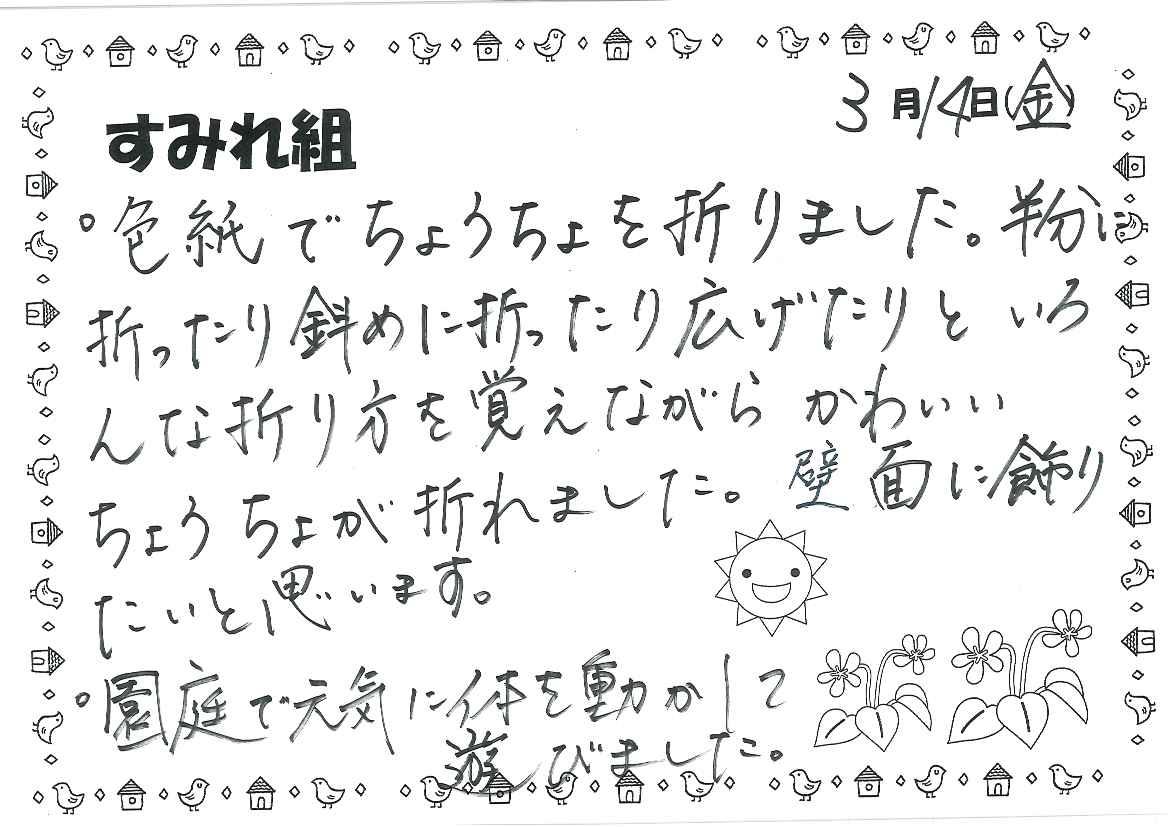 3月14日(金)
すみれ組
°色紙でちょうちょを折りました。半分に
折ったり斜めに折ったり広げたりと いろ
んな折り方を覚えながら かわいい
ちょうちょが折れました。壁面に飾り
たいと思います。
°園庭で元気に体を動かして
遊びました。